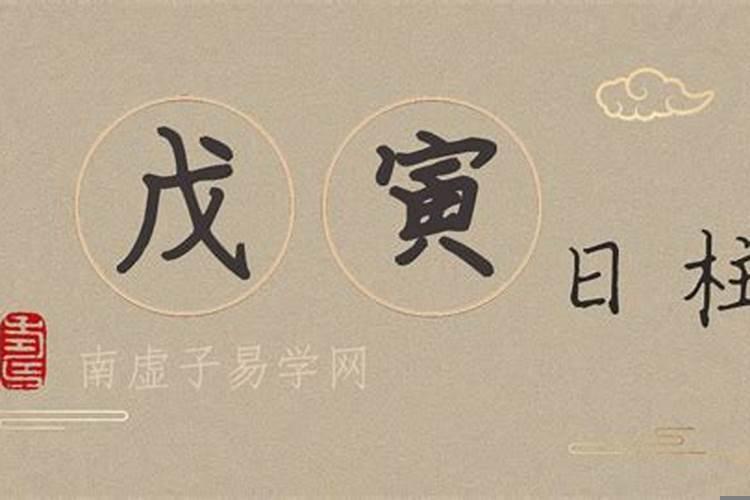 戊寅
日柱
南虚子易学网